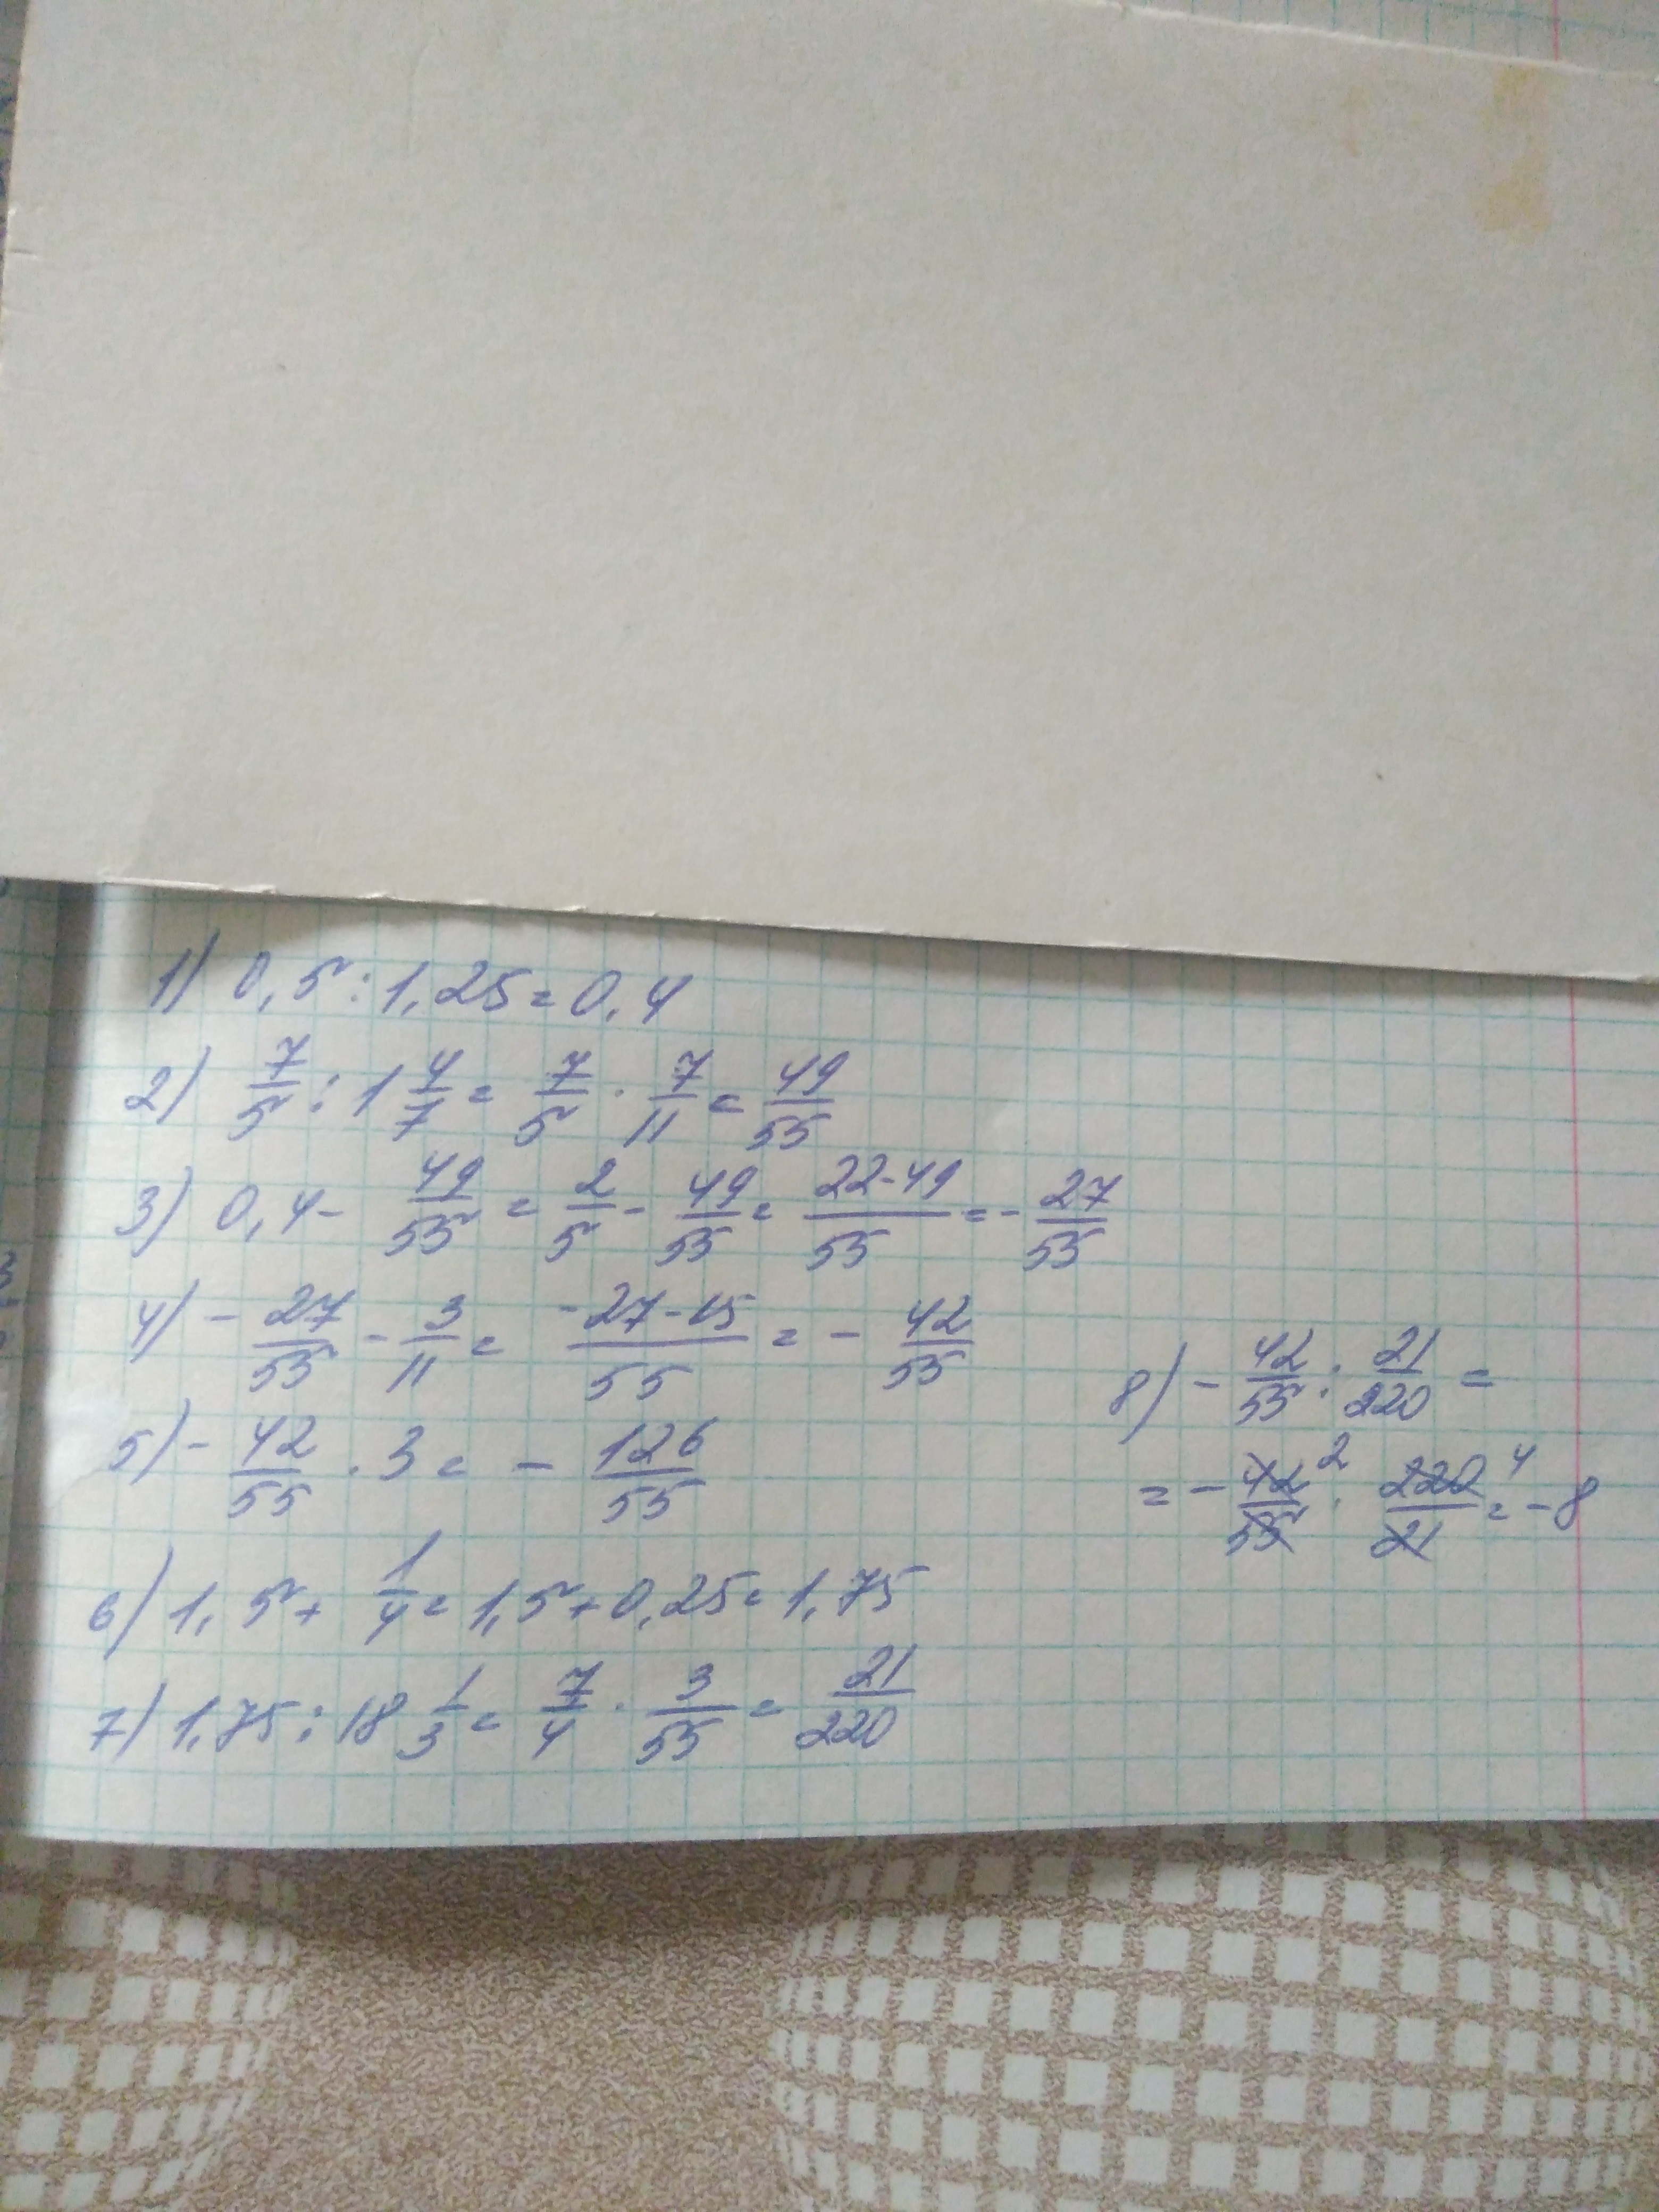 1) 0,5 : 1,25 = 0,4
2) 7/5 : 1 4/7 = 7/5 · 7/11 = 49/55
3) 0,4 - 49/55 = 2/5 - 49/55 = 22-49/55 = - 27/55
4) - 27/55 - 3/11 = -27-15/55 = - 42/55
5) - 42/55 · 3 = - 126/55
6) 1,5 + 1/4 = 1,5 + 0,25 = 1,75
7) 1,75 : 18 1/3 = 7/4 · 3/55 = 21/220
8) - 42/55 : 21/220 =
= - 42 2/55 · 220 4/21 = - 8